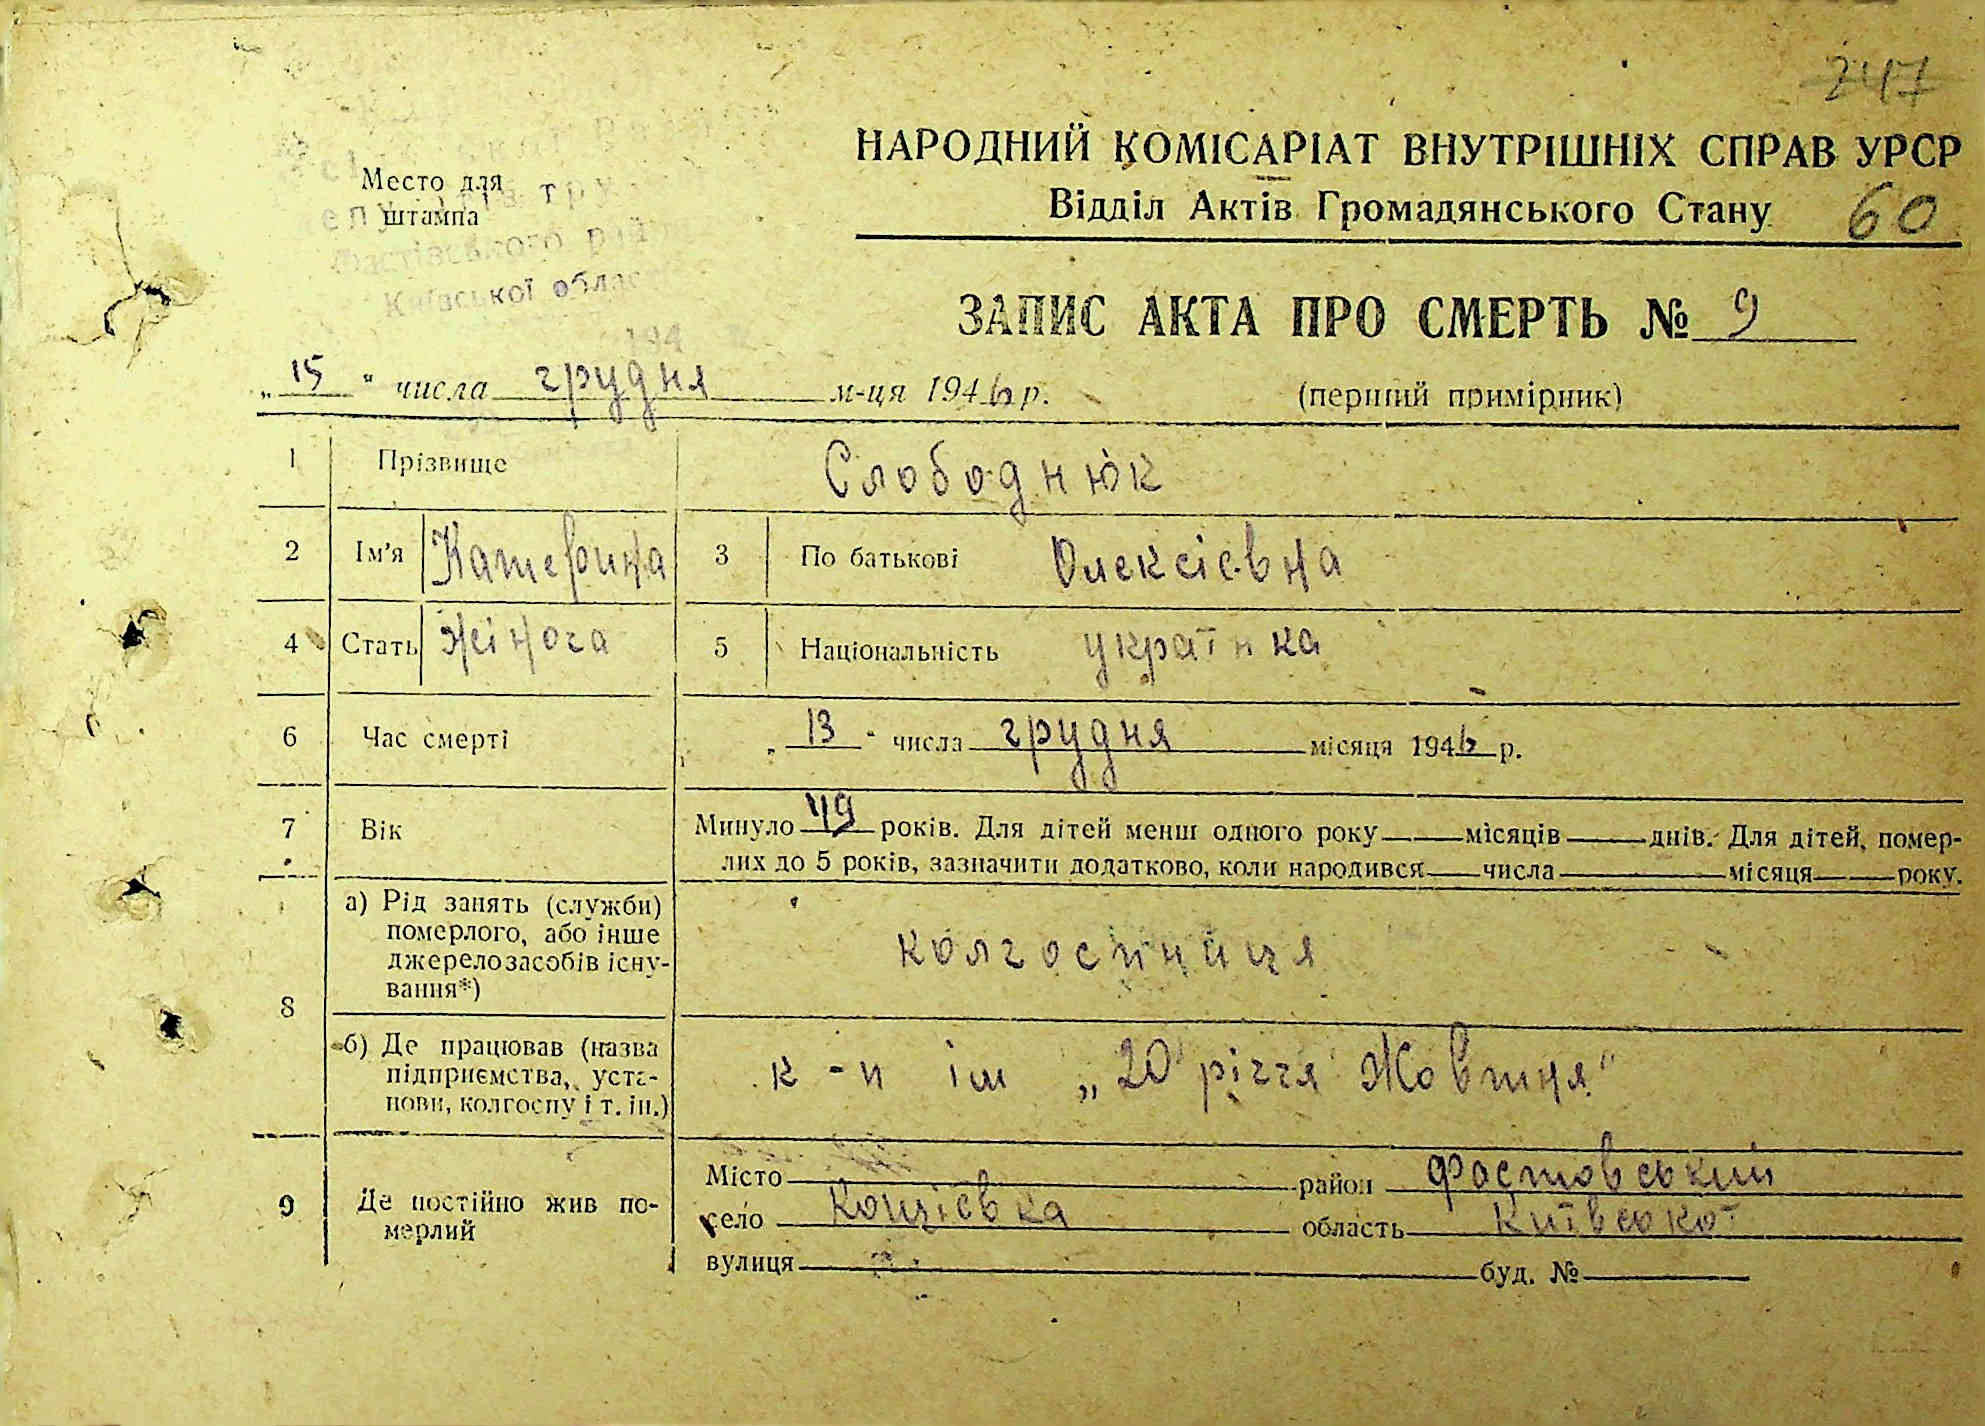 247
НАРОДНИЙ КОМІСАРІАТ ВНУТРІШНІХ СПРАВ УРСР
Відділ Актів Громадянського Стану 60
Место для
штампа
Фастівського
Київської област
194
ЗАПИС АКТА ПРО СМЕРТЬ № 9
„15“ числа грудня м-ця 1946 р. (перший примірник)
1 Прізвище Слободнюк
2 Ім'я Катерина 3 По батькові Олексієвна
4 Стать жіноча 5 Національність українка
6 Час смерті „13“ числа грудня місяця 1946 р.
7 Вік Минуло 49 років. Для дітей менш одного року місяців днів. Для дітей, помер-
лих до 5 років, зазначити додатково, коли народився числа місяця року.
8 а) Рід занять (служби)
померлого, або інше
джерело засобів існу-
вання*) колгоспниця
б) Де працював (назва
підприємства, уста-
нови, колгоспу і т. ін.) к-п ім „20 річчя Жовтня"
9 Де постійно жив по-
мерлий
Місто район Фастовський
село Кощієвка область Київської
вулиця буд. №